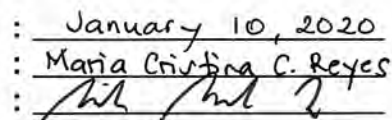 : January 10, 2020
: Maria Cristina C. Reyes
: